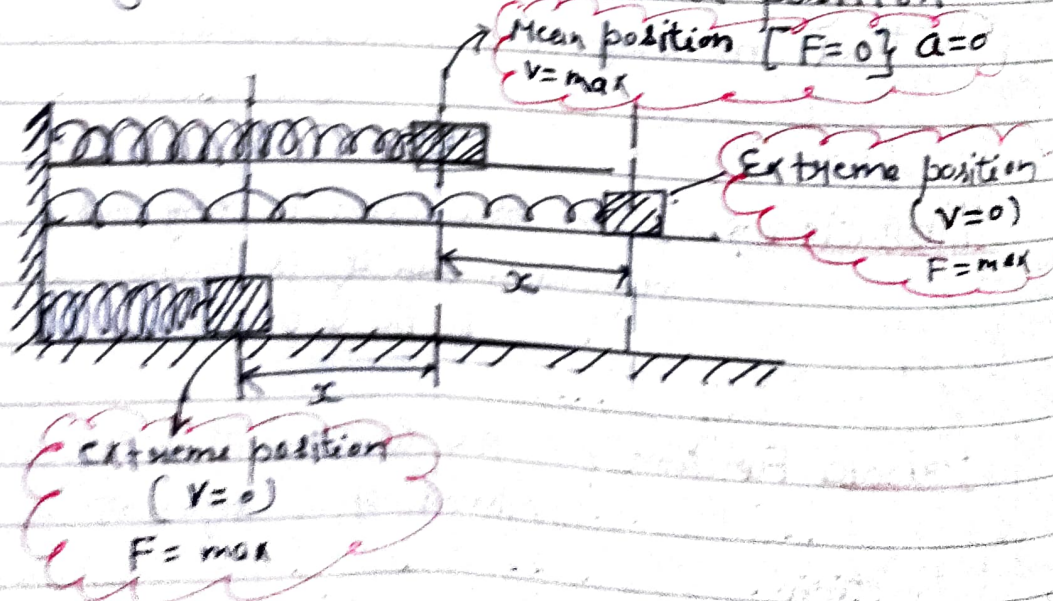 Mean position [F=0} a=0
V=max
Extreme position
(V=0)
F=max
x
x
Extreme position
(V=0)
F= max